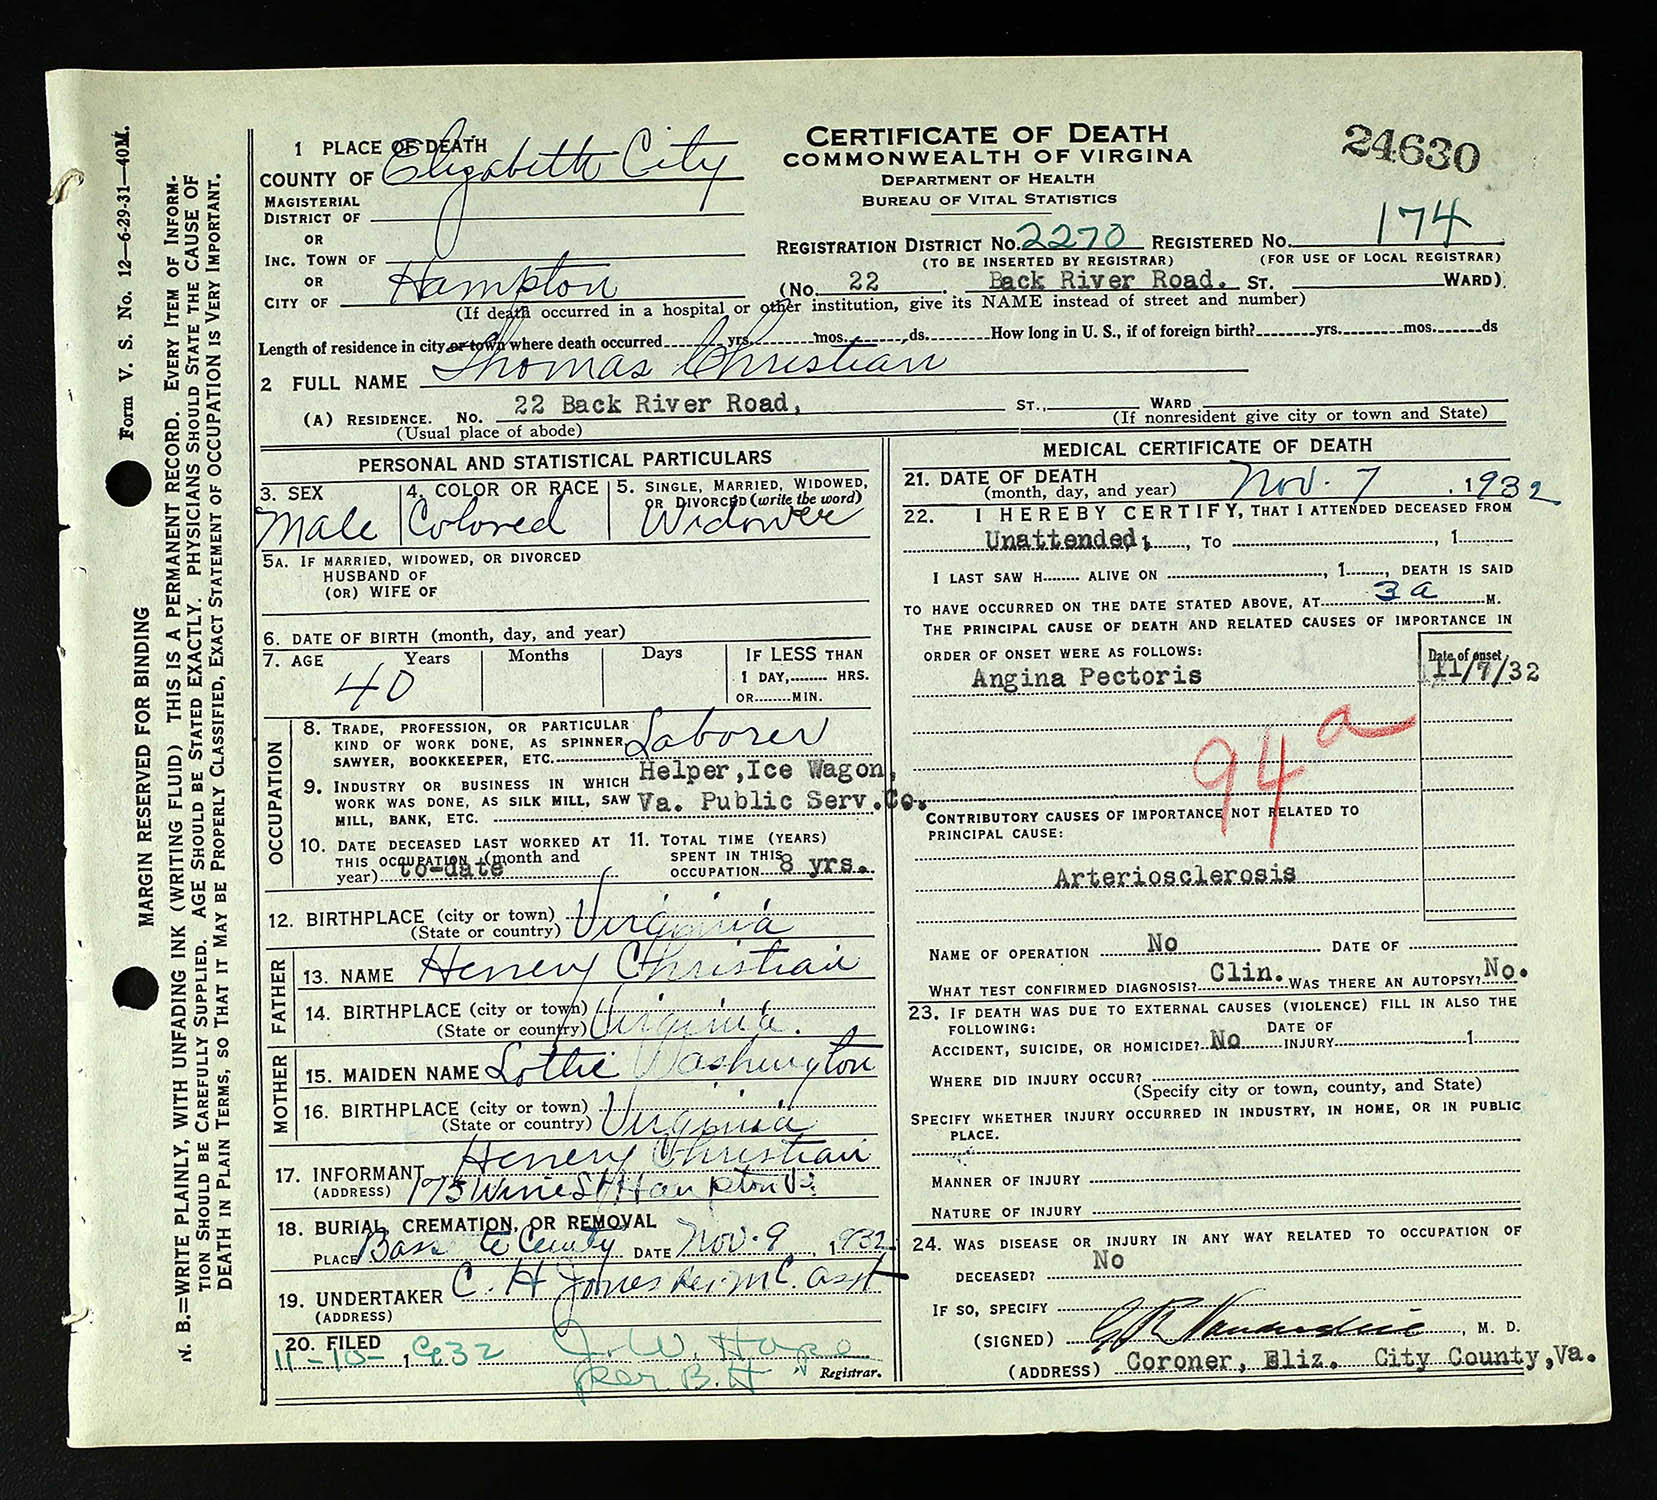 Form V. S. No. 12—6-29-31—40M.
MARGIN RESERVED FOR BINDING
N. B.=WRITE PLAINLY, WITH UNFADING INK (WRITING FLUID) THIS IS A PERMANENT RECORD. EVERY ITEM OF INFORM-
TION SHOULD BE CAREFULLY SUPPLIED. AGE SHOULD BE STATED EXACTLY. PHYSICIANS SHOULD STATE THE CAUSE OF
DEATH IN PLAIN TERMS, SO THAT IT MAY BE PROPERLY CLASSIFIED, EXACT STATEMENT OF OCCUPATION IS VERY IMPORTANT.
CERTIFICATE OF DEATH
COMMONWEALTH OF VIRGINIA
DEPARTMENT OF HEALTH
BUREAU OF VITAL STATISTICS
24630
1 PLACE OF DEATH
COUNTY OF Elizabeth City
MAGISTERIAL
DISTRICT OF
OR
INC. TOWN OF
OR
CITY OF Hampton
REGISTRATION DISTRICT No. 2270 REGISTERED No. 174
(TO BE INSERTED BY REGISTRAR) (FOR USE OF LOCAL REGISTRAR)
(No. 22 Back River Road. ST. WARD)
(If death occurred in a hospital or other institution, give its NAME instead of street and number)
Length of residence in city or town where death occurred yrs. mos. ds. How long in U. S., if of foreign birth? yrs. mos. ds
2 FULL NAME Thomas Christian
(A) RESIDENCE. No. 22 Back River Road, ST., WARD
(Usual place of abode) (If nonresident give city or town and State)
PERSONAL AND STATISTICAL PARTICULARS
3. SEX Male
4. COLOR OR RACE Colored
5. SINGLE, MARRIED, WIDOWED,
OR DIVORCED (write the word) Widower
5A. IF MARRIED, WIDOWED, OR DIVORCED
HUSBAND OF
(OR) WIFE OF
6. DATE OF BIRTH (month, day, and year)
7. AGE Years Months Days IF LESS THAN
40 1 DAY, HRS.
OR MIN.
OCCUPATION
8. TRADE, PROFESSION, OR PARTICULAR
KIND OF WORK DONE, AS SPINNER, Laborer
SAWYER, BOOKKEEPER, ETC.
9. INDUSTRY OR BUSINESS IN WHICH Helper, Ice Wagon,
WORK WAS DONE, AS SILK MILL, SAW Va. Public Serv. Co.
MILL, BANK, ETC.
10. DATE DECEASED LAST WORKED AT
THIS OCCUPATION (month and
year) to-date
11. TOTAL TIME (YEARS)
SPENT IN THIS
OCCUPATION 8 yrs.
12. BIRTHPLACE (city or town)
(State or country) Virginia
FATHER
13. NAME Henery Christian
14. BIRTHPLACE (city or town)
(State or country) Virginia.
MOTHER
15. MAIDEN NAME Lottie Washington
16. BIRTHPLACE (city or town)
(State or country) Virginia
17. INFORMANT Henery Christian
(ADDRESS) Hampton Va
18. BURIAL, CREMATION, OR REMOVAL
PLACE DATE Nov. 9, 1932
19. UNDERTAKER C. H. Jones
(ADDRESS)
20. FILED
11-10-, 1932 J. W. Hope
per. B.H Registrar.
MEDICAL CERTIFICATE OF DEATH
21. DATE OF DEATH
(month, day, and year) Nov. 7, 1932
22. I HEREBY CERTIFY, THAT I ATTENDED DECEASED FROM
Unattended; , TO , 1
I LAST SAW H ALIVE ON , 1 , DEATH IS SAID
TO HAVE OCCURRED ON THE DATE STATED ABOVE, AT 3a M.
THE PRINCIPAL CAUSE OF DEATH AND RELATED CAUSES OF IMPORTANCE IN
ORDER OF ONSET WERE AS FOLLOWS: Date of onset
Angina Pectoris 11/7/32
94a
CONTRIBUTORY CAUSES OF IMPORTANCE NOT RELATED TO
PRINCIPAL CAUSE:
Arteriosclerosis
NAME OF OPERATION No DATE OF
WHAT TEST CONFIRMED DIAGNOSIS? Clin. WAS THERE AN AUTOPSY? No.
23. IF DEATH WAS DUE TO EXTERNAL CAUSES (VIOLENCE) FILL IN ALSO THE
FOLLOWING: DATE OF
ACCIDENT, SUICIDE, OR HOMICIDE? No INJURY 1
WHERE DID INJURY OCCUR?
(Specify city or town, county, and State)
SPECIFY WHETHER INJURY OCCURRED IN INDUSTRY, IN HOME, OR IN PUBLIC
PLACE.
MANNER OF INJURY
NATURE OF INJURY
24. WAS DISEASE OR INJURY IN ANY WAY RELATED TO OCCUPATION OF
DECEASED? No
IF SO, SPECIFY
(SIGNED) , M. D.
(ADDRESS) Coroner, Eliz. City County, Va.